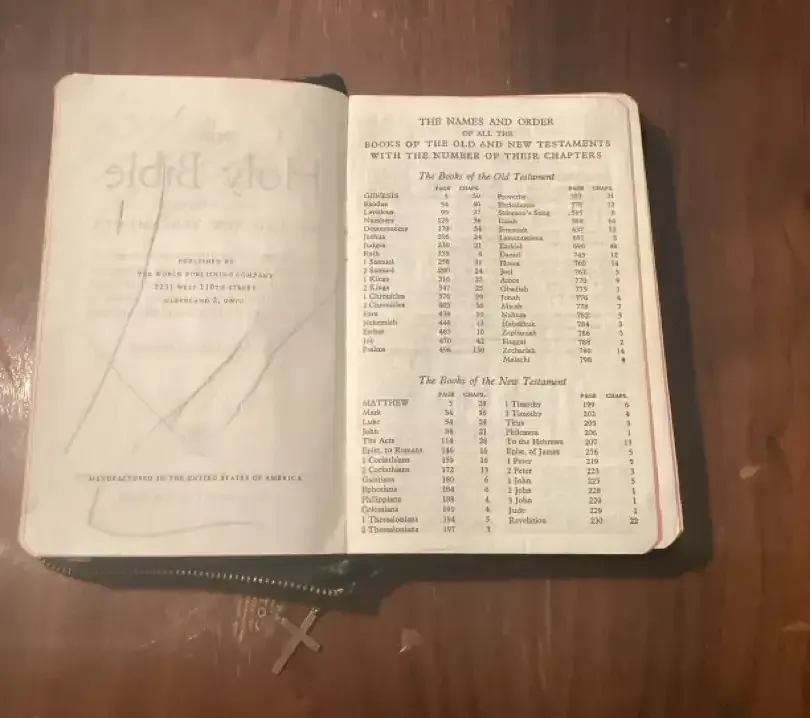 Holy Bible
PUBLISHED BY
THE WORLD PUBLISHING COMPANY
2231 WEST 110TH STREET
CLEVELAND 2, OHIO
MANUFACTURED IN THE UNITED STATES OF AMERICA
THE NAMES AND ORDER
OF ALL THE
BOOKS OF THE OLD AND NEW TESTAMENTS
WITH THE NUMBER OF THEIR CHAPTERS
The Books of the Old Testament
PAGE CHAPS.
GENESIS 5 50
Exodus 40
Leviticus 95 27
Numbers 36
Deuteronomy 34
Joshua 24
Judges 21
Ruth 4
1 Samuel 31
2 Samuel 24
1 Kings 22
2 Kings 347 25
1 Chronicles 29
2 Chronicles 36
Ezra 10
Nehemiah 13
Esther 10
Job 42
Psalms 150
PAGE CHAPS.
Proverbs 31
Ecclesiastes 12
Solomon's Song 8
Isaiah 66
Jeremiah 637 52
Lamentations 5
Ezekiel 48
Daniel 745 12
Hosea 760 14
Joel 767
Amos 770 9
Obadiah 775 1
Jonah 776 4
Micah 778 7
Nahum 782 3
Habakkuk 784 3
Zephaniah 786 3
Haggai 788 2
Zechariah 790 14
Malachi 798 4
The Books of the New Testament
PAGE CHAPS.
MATTHEW 5 28
Mark 34 16
Luke 54 24
John 88 21
The Acts 114 28
Epist. to Romans 146 16
1 Corinthians 159 16
2 Corinthians 172 13
Galatians 180 6
Ephesians 184 6
Philippians 188 4
Colossians 191 4
1 Thessalonians 194 5
2 Thessalonians 197 3
PAGE CHAPS.
1 Timothy 199 6
2 Timothy 202 4
Titus 205 3
Philemon 206 1
To the Hebrews 207 13
Epist. of James 216 5
1 Peter 219 5
2 Peter 223 3
1 John 225 5
2 John 228 1
3 John 229 1
Jude 229 1
Revelation 230 22